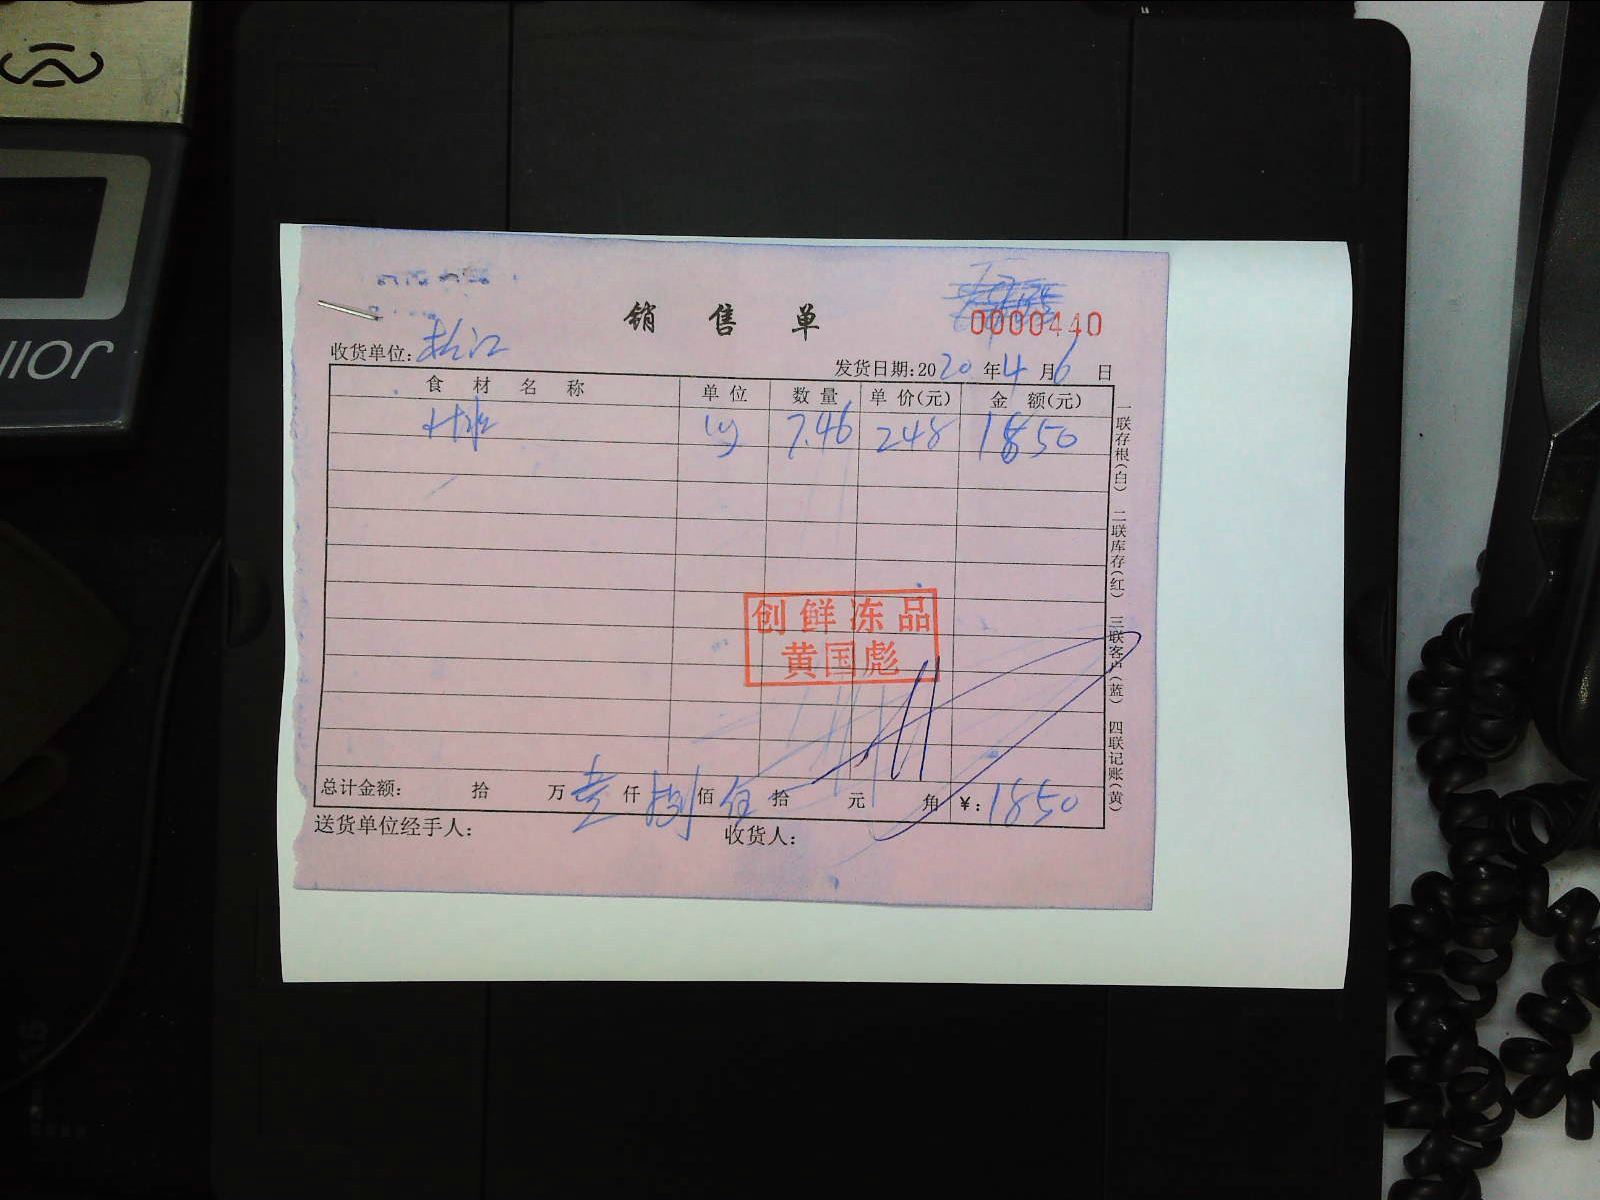 销售单
0000440
收货单位: 松江
发货日期:2020年4月6日
食材名称 单位 数量 单价(元) 金额(元)
7.46 248 1850
一联存根(白) 二联库存(红) 三联客户(蓝) 四联记账(黄)
创鲜冻品
黄国彪
总计金额: 拾 万 壹 仟 捌 佰 伍 拾 元 角 ¥:1850
送货单位经手人: 收货人: